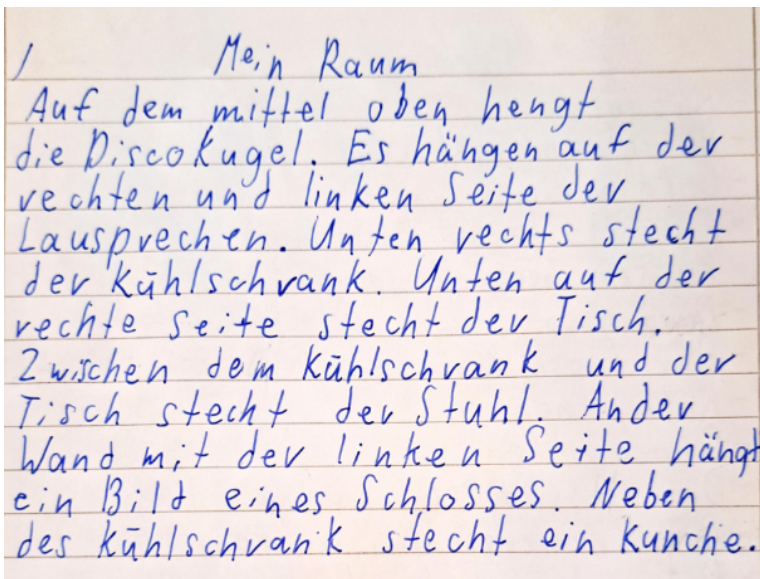 / Mein Raum
Auf dem mittel oben hengt
die Discokugel. Es hängen auf der
rechten und linken Seite der
Lausprechen. Unten rechts stecht
der Kühlschrank. Unten auf der
rechte Seite stecht der Tisch.
Zwischen dem Kühlschrank und der
Tisch stecht der Stuhl. Ander
Wand mit der linken Seite hängt
ein Bild eines Schlosses. Neben
des Kühlschrank stecht ein Kunche.